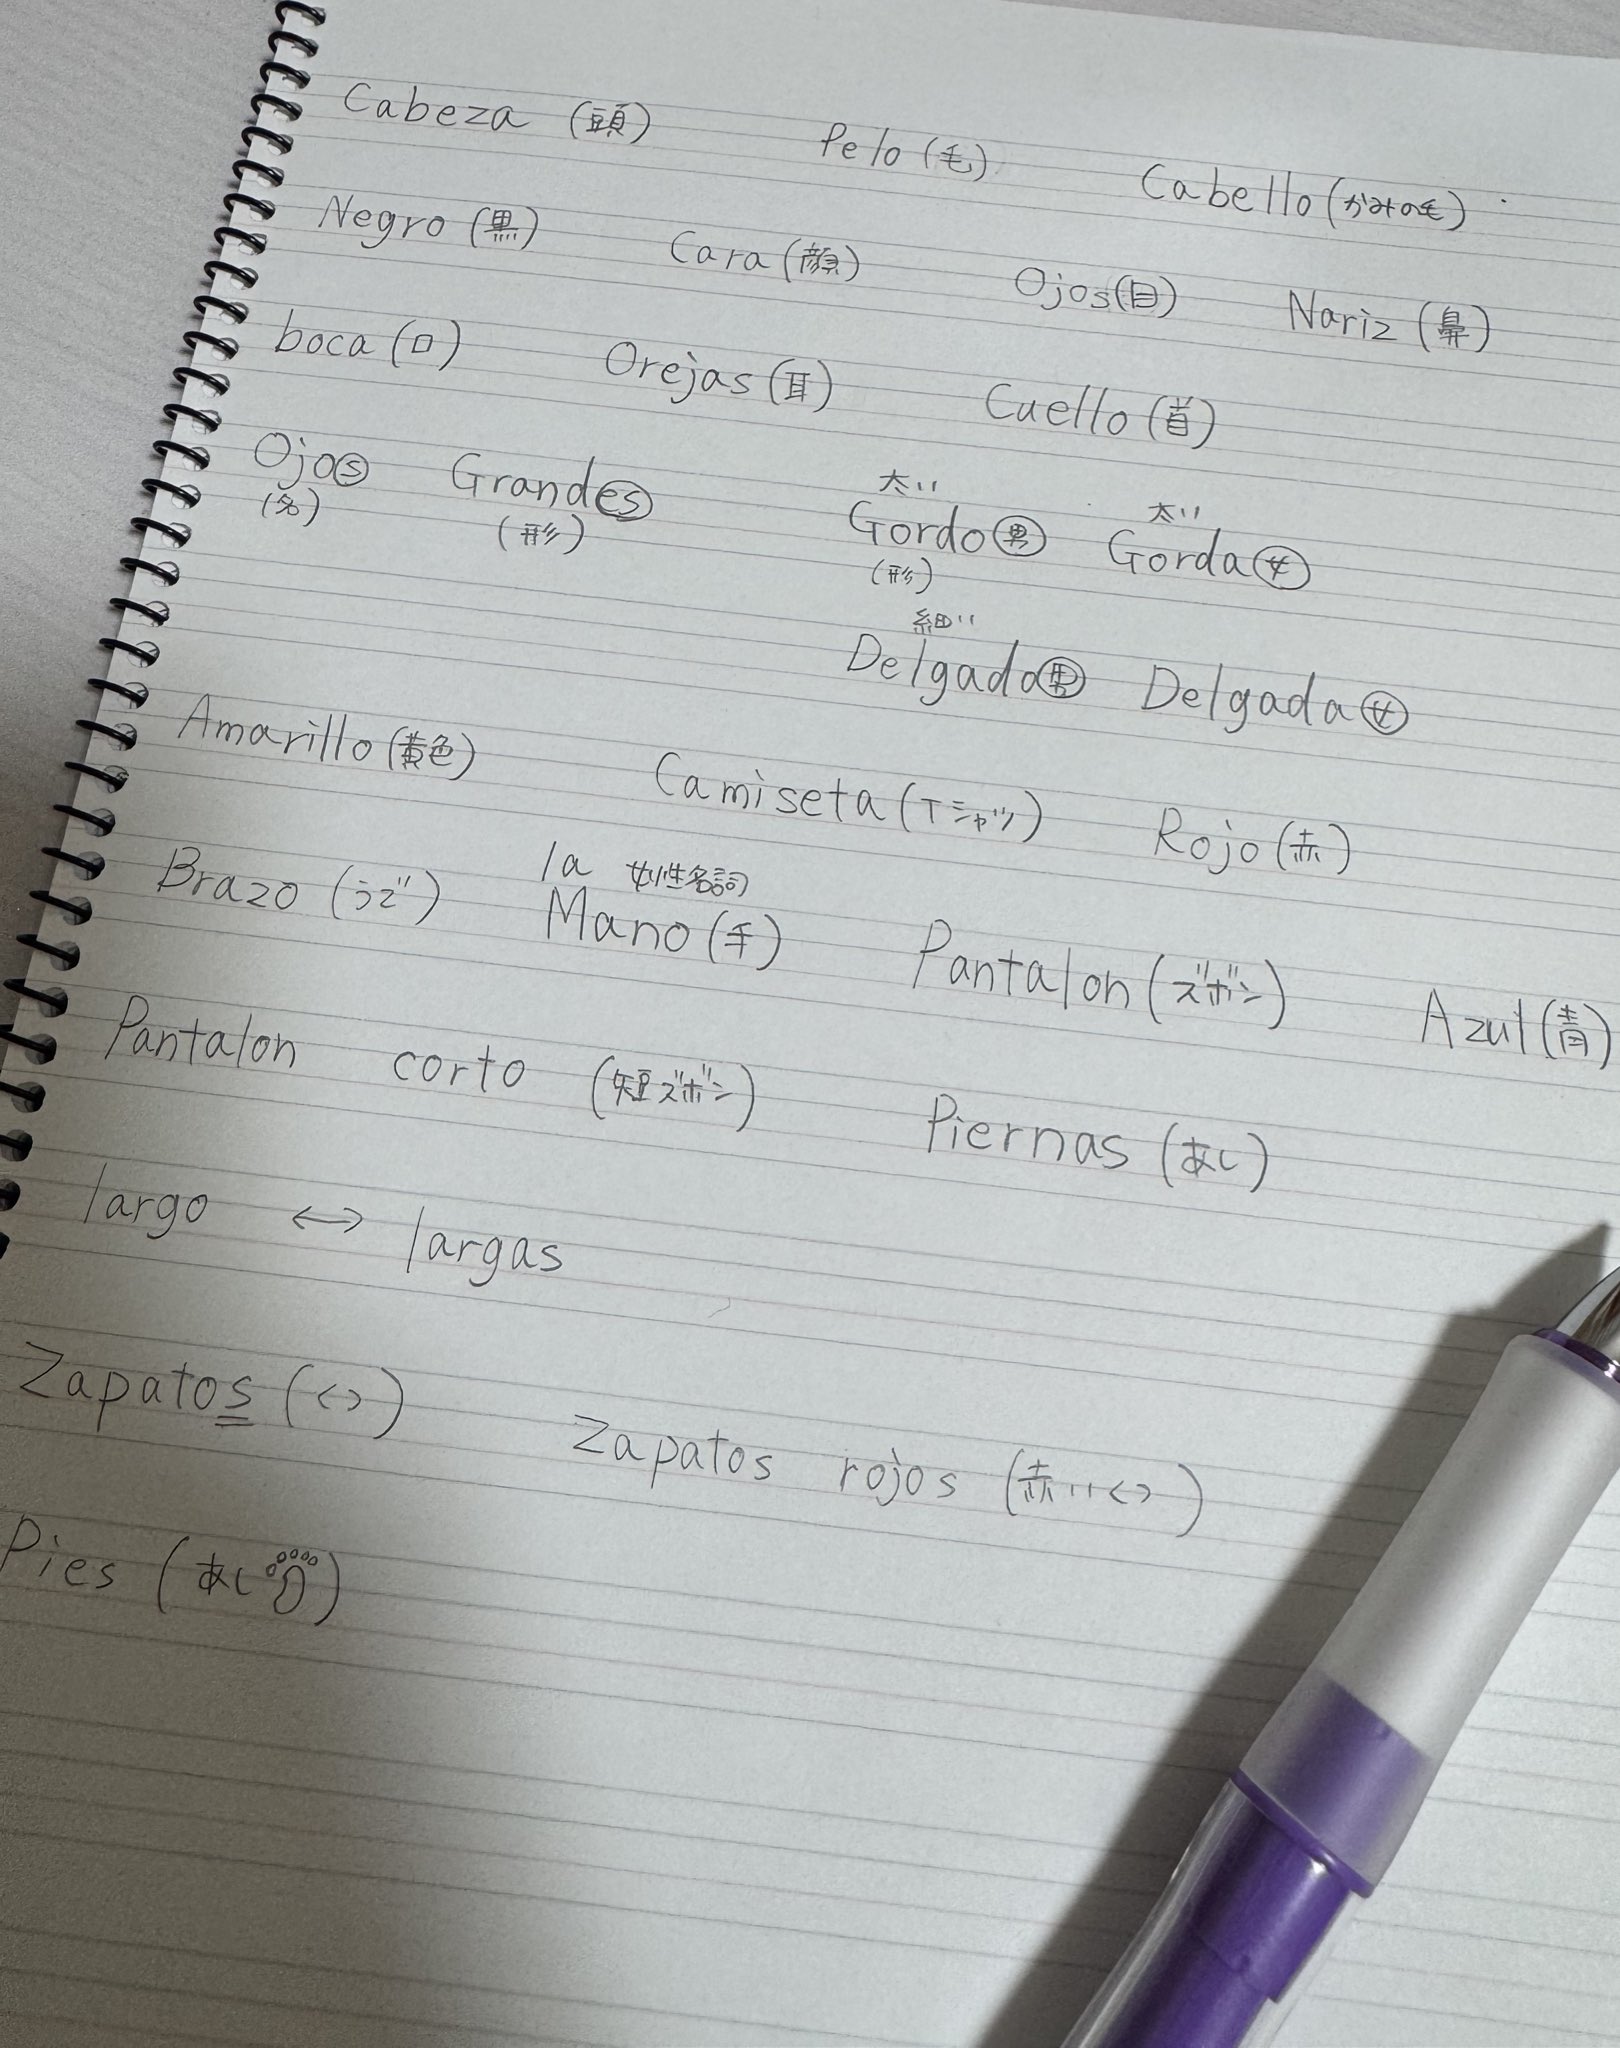 Cabeza (頭) Pelo (毛) Cabello (かみの毛)
Negro (黒) Cara (顔) Ojos (目) Nariz (鼻)
boca (口) Orejas (耳) Cuello (首)
太い 太い
Ojos Grandes Gordo 男 Gorda 女
(名) (形) (形)
細い
Delgado 男 Delgada 女
Amarillo (黄色) Camiseta (Tシャツ) Rojo (赤)
la 女性名詞
Brazo (うで) Mano (手) Pantalon (ズボン) Azul (青)
Pantalon corto (短ズボン) Piernas (あし)
largo ↔ largas
Zapatos (くつ) Zapatos rojos (赤いくつ)
Pies (あし)